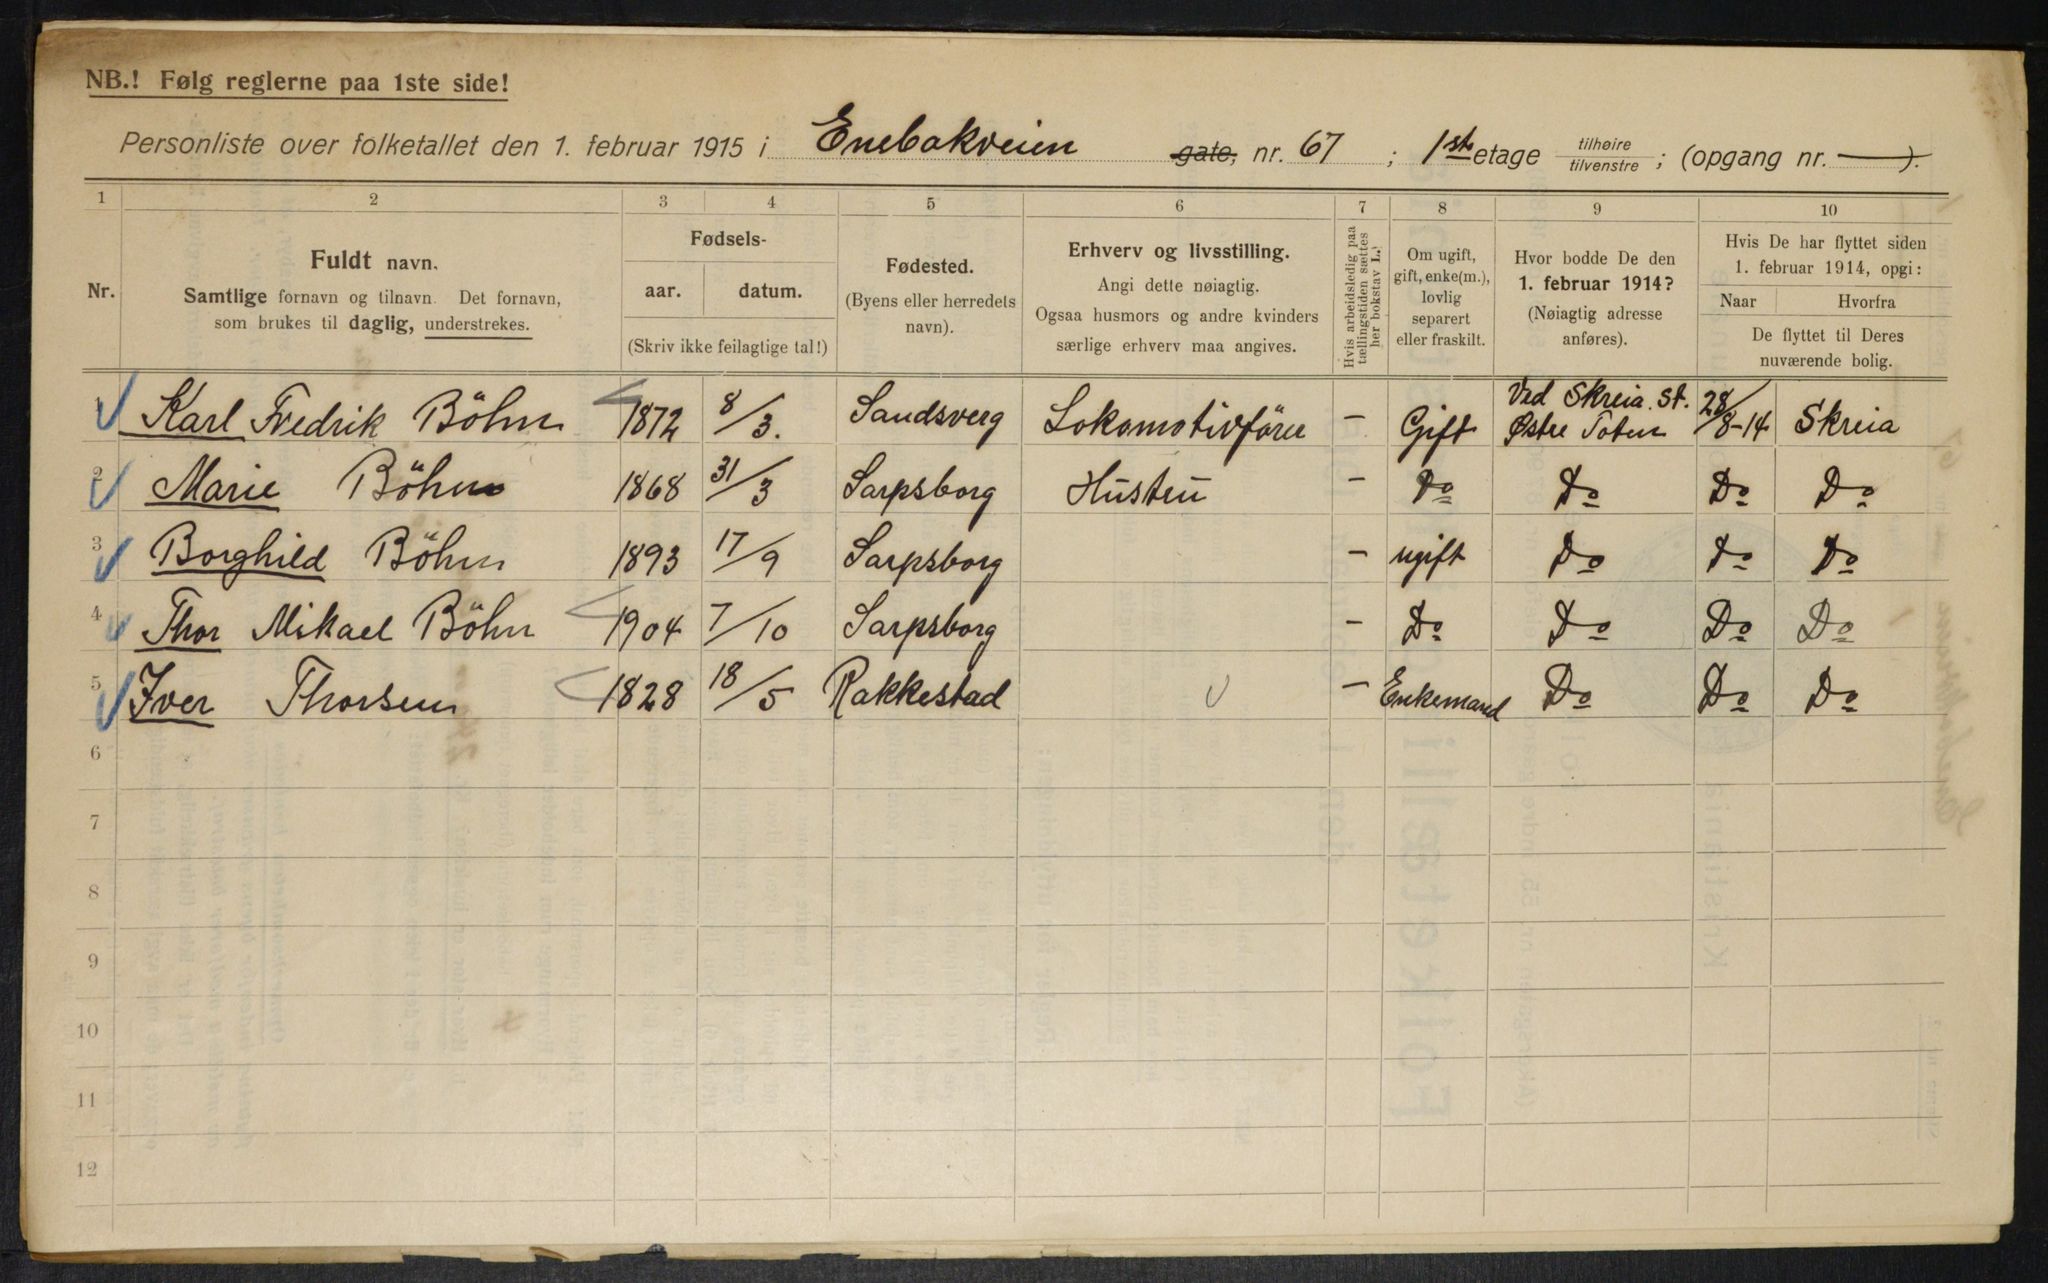 NB.! Følg reglerne paa 1ste side!
Personliste over folketallet den 1. februar 1915 i Enebakveien gate, nr. 67 ; 1ste etage tilhøire tilvenstre ; (opgang nr. ——).
1 2 3 4 5 6 7 8 9 10
Nr.
Fuldt navn.
Samtlige fornavn og tilnavn. Det fornavn,
som brukes til daglig, understrekes.
Fødsels-
aar. datum.
(Skriv ikke feilagtige tal!)
Fødested.
(Byens eller herredets
navn).
Erhverv og livsstilling.
Angi dette nøiagtig.
Ogsaa husmors og andre kvinders
særlige erhverv maa angives.
Hvis arbeidsledig paa
tællingstiden sættes
her bokstav L.
Om ugift,
gift, enke(m.),
lovlig
separert
eller fraskilt.
Hvor bodde De den
1. februar 1914?
(Nøiagtig adresse
anføres).
Hvis De har flyttet siden
1. februar 1914, opgi:
Naar Hvorfra
De flyttet til Deres
nuværende bolig.
1 Karl Fredrik Böhn 1872 8/3. Sandsverg Lokomotivfører – Gift Ved Skreia St. Østre Toten 28/8-14 Skreia
2 Marie Böhn 1868 31/3 Sarpsborg Hustru – Do Do Do Do
3 Borghild Böhn 1893 17/9 Sarpsborg – ugift Do Do Do
4 Thor Mikael Böhn 1904 7/10 Sarpsborg – Do Do Do Do
5 Iver Thorsen 1828 18/5 Rakkestad – Enkemand Do Do Do
6
7
8
9
10
11
12